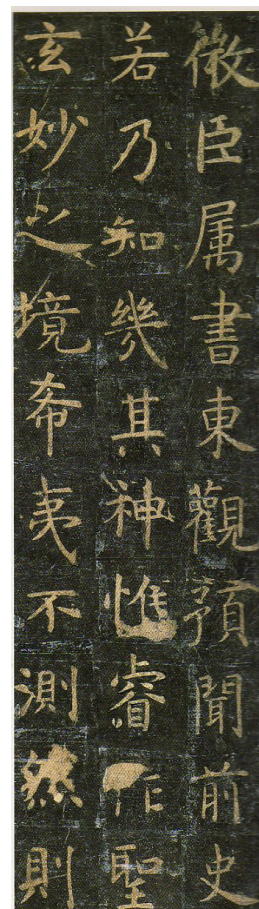 微臣属書東觀預聞前史
若乃知幾其神惟睿作聖
玄妙之境希夷不測然則